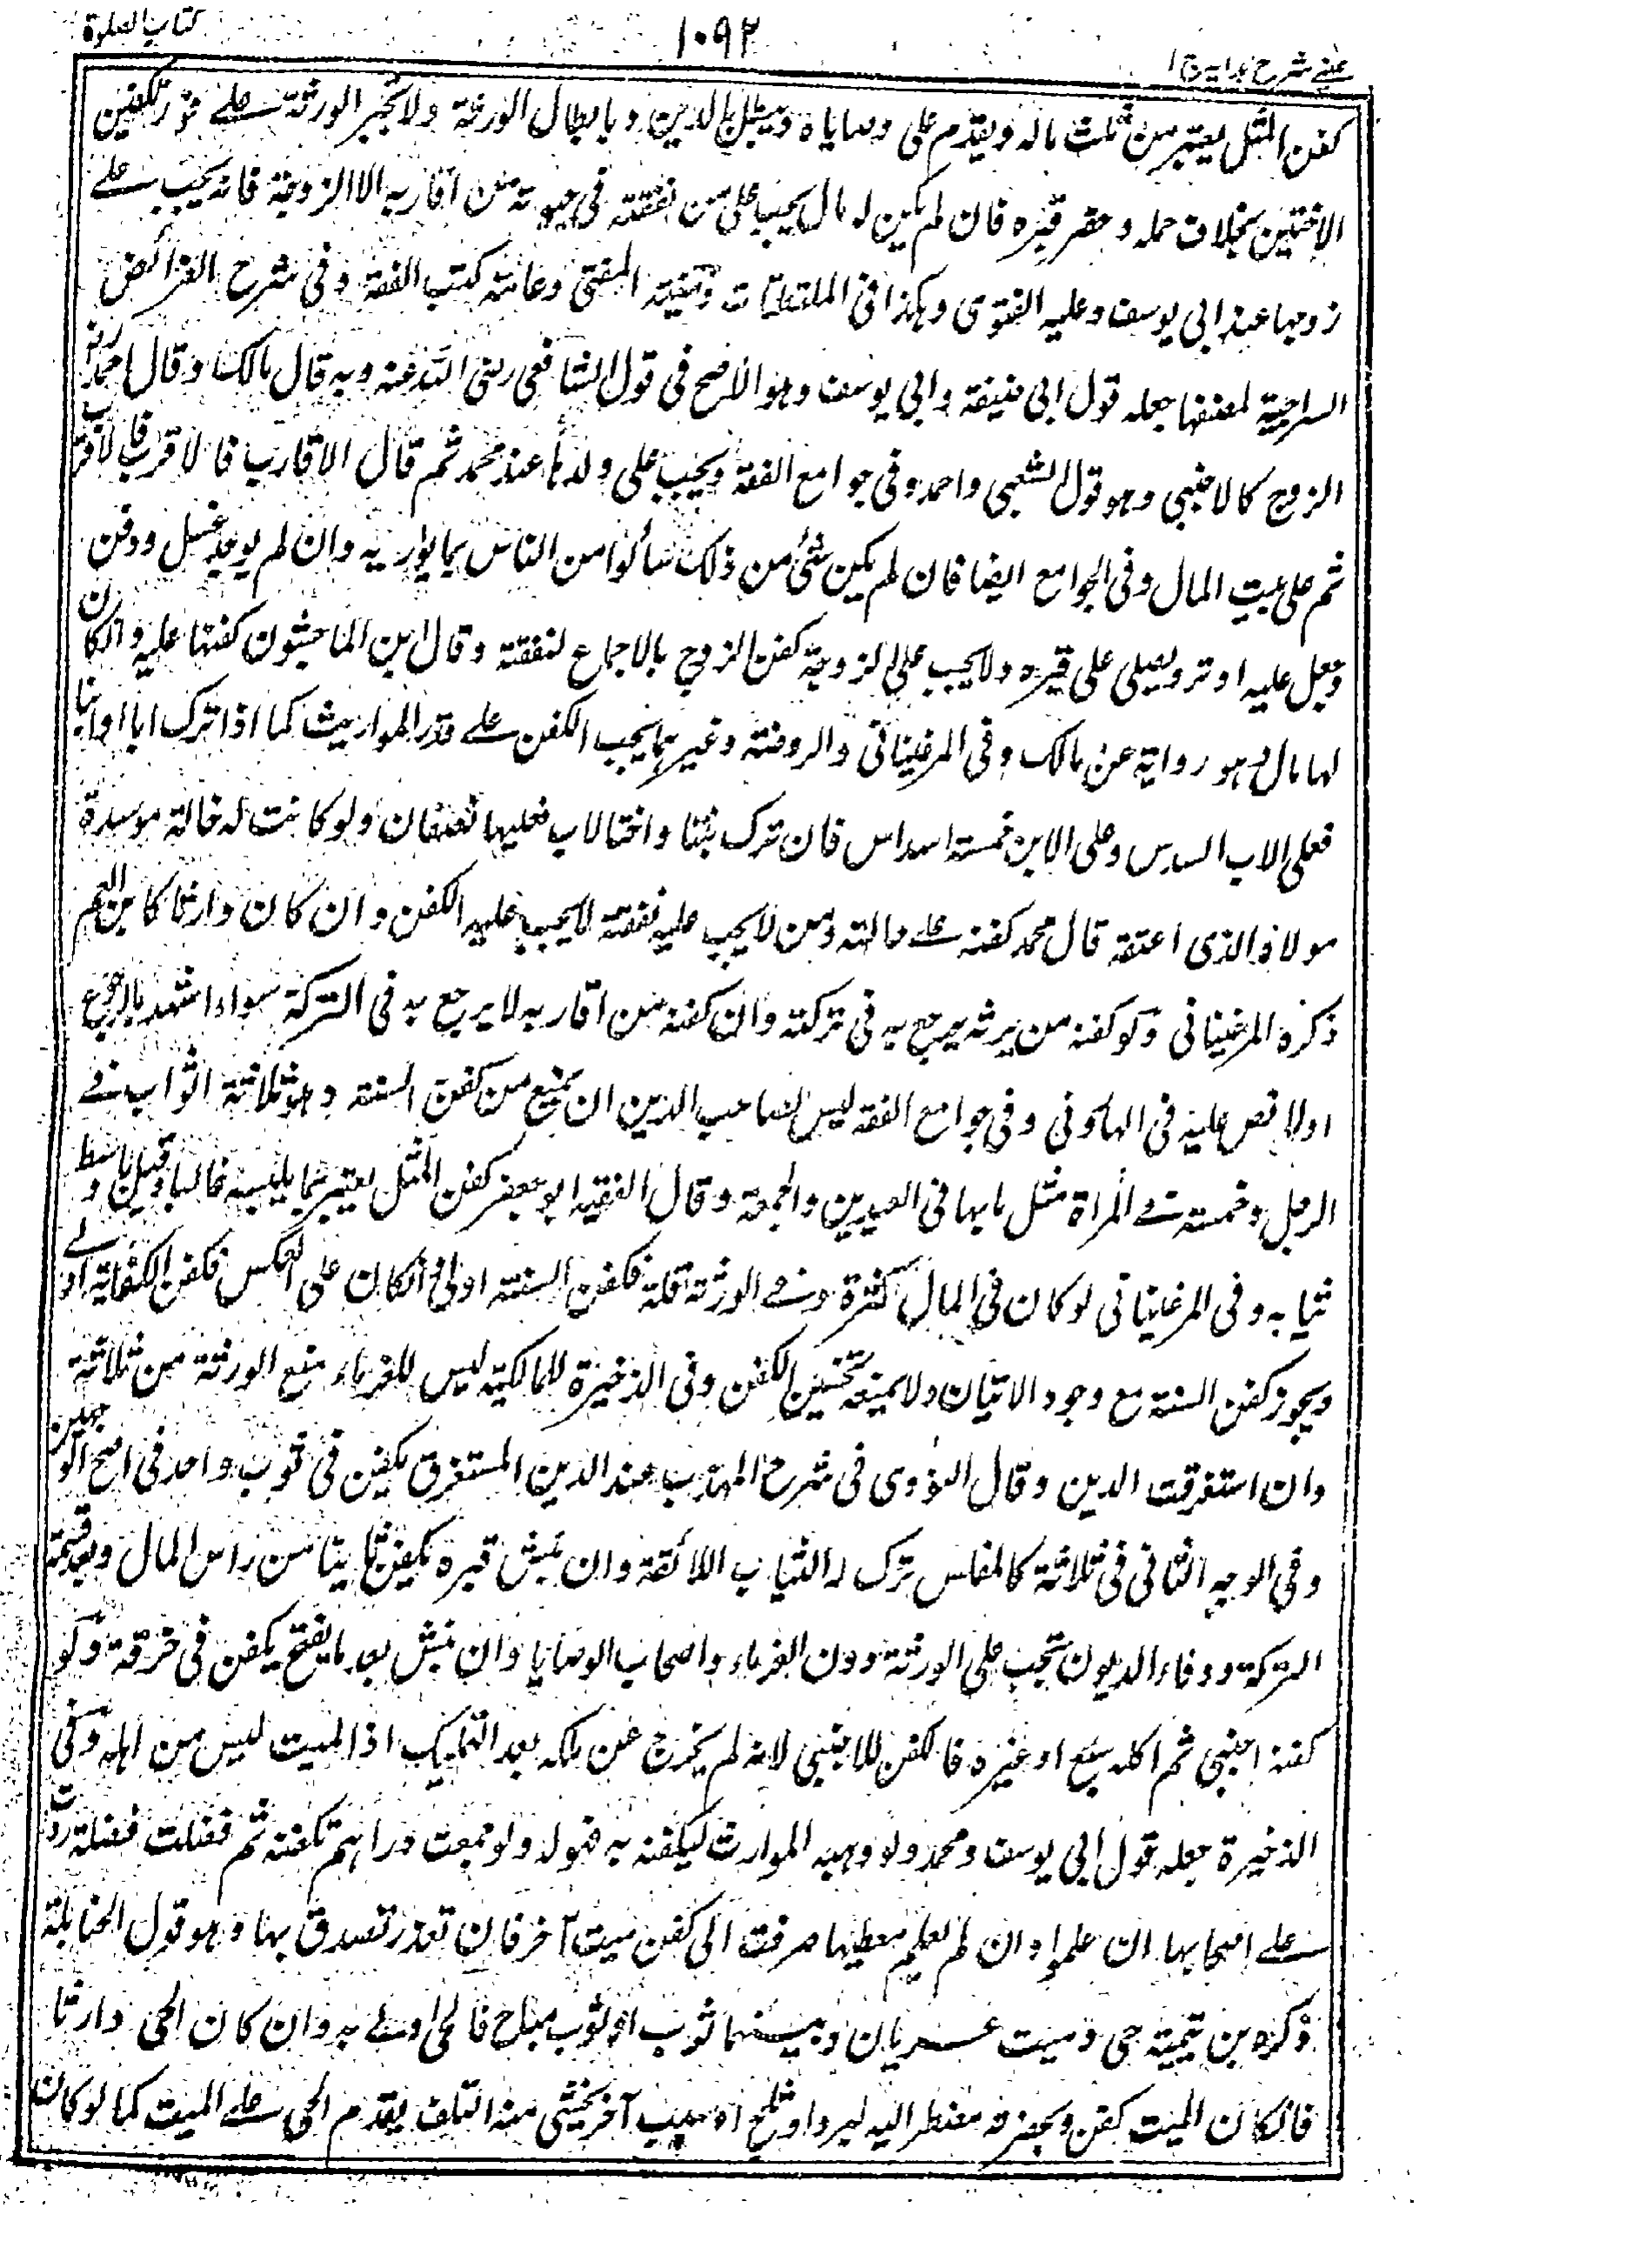 عينى شرح هداية ج ١
١٠٩٢
كتاب الصلوة
كفن المثل يعتبر من ثلث ماله ويقدم على وصاياه ويبطل بالدين وبابطال الورثة ولا تجبر الورثة على تكفين
الاختين بخلاف حمله وحفر قبره فان لم يكن له مال يجب على من نفقته فى حيوته من اقاربه الا الزوجة فانه يجب على
زوجها عند ابى يوسف وعليه الفتوى وهكذا فى الملتقطات ومنية المفتى وعامة كتب الفقه وفى شرح الفرائض
السراجية لمصنفها جعله قول ابى حنيفة وابى يوسف وهو الاصح فى قول الشافعى رضى الله عنه وبه قال مالك وقال احمد رح
الزوج كالاجنبى وهو قول الشعبى واحمد وفى جوامع الفقه ويجب على ولدها عند محمد ثم قال الاقارب فالاقرب فالاقرب
ثم على بيت المال وفى الجوامع ايضا فان لم يكن شئ من ذلك سألوا من الناس بما يواريه وان لم يوجد غسل ودفن
وجعل عليه اوتر ويصلى على قبره ولا يجب على الزوجة كفن الزوج بالاجماع لنفقته وقال ابن الماجشون كفنها عليه وان كان
لها مال وهو رواية عن مالك وفى المرغينانى والروضة وغيرهما يجب الكفن على قدر المواريث كما اذا ترك ابا وابنا
فعلى الاب السدس وعلى الابن خمسة اسداس فان ترك بنتا واختا لاب فعليها نصفان ولو كانت له خالة موسرة
مولاه الذى اعتقه قال محمد كفنه على خالته ومن لا يجب عليه نفقته لا يجب عليه الكفن وان كان وارثا كابن العم
ذكره المرغينانى ولو كفنه من يرثه يرجع به فى تركته وان كفنه من اقاربه لا يرجع به فى التركة سواء اشهد بالرجوع
اولا نص عليه فى الهاونى وفى جوامع الفقه ليس لصاحب الدين ان يمنع من كفن السنة وهو ثلاثة اثواب فى
الرجل وخمسة فى المراة مثل ما بها فى العيدين والجمعة وقال الفقيه ابو جعفر كفن المثل يعتبر بما يلبسه غالبا وقيل باوسط
ثيابه وفى المرغينانى لو كان فى المال كثرة وفى الورثة قلة فكفن السنة اولى وان كان على العكس فكفن الكفاية اولى
ويجوز كفن السنة مع وجود الاثنان ولا يمنعه تحسين الكفن وفى الذخيرة للمالكية ليس للغرماء منع الورثة من ثلاثة
وان استغرقت الدين وقال النووى فى شرح المهذب عند الدين المستغرق يكفن فى ثوب واحد فى اصح الوجهين
وفى الوجه الثانى فى ثلاثة كالمفلس ترك له الثياب اللائقة وان نبش قبره يكفن ثانيا من راس المال وبعد قسمة
التركة ووفاء الديون تجب على الورثة دون الغرماء واصحاب الوصايا وان نبش بعد ما يفسخ يكفن فى خرقة ولو
كفنه اجنبى ثم اكله سبع او غيره فالكفن للاجنبى لانه لم يخرج عن ملكه بعد التمليك اذ الميت ليس من اهله وفى
الذخيرة جعله قول ابى يوسف ومحمد ولو وهبه الموارث ليكفنه به فهو له ولو جمعت دراهم تكفنه ثم فضلت فضلة ردت
على اصحابها ان علم او ان لم يعلم معطيها صرفت الى كفن ميت آخر فان تعذر تصدق بها وهو قول الحنابلة
ذكره بن تيمية حى وميت عريان وبينهما ثوب او ثوب مباح فالحى اولى به وان كان الحى وارثا
فان كان الميت كفن وبحضرته مضطر اليه لبرد او ثلج او سبب آخر يخشى منه التلف يقدم الحى على الميت كما لو كان